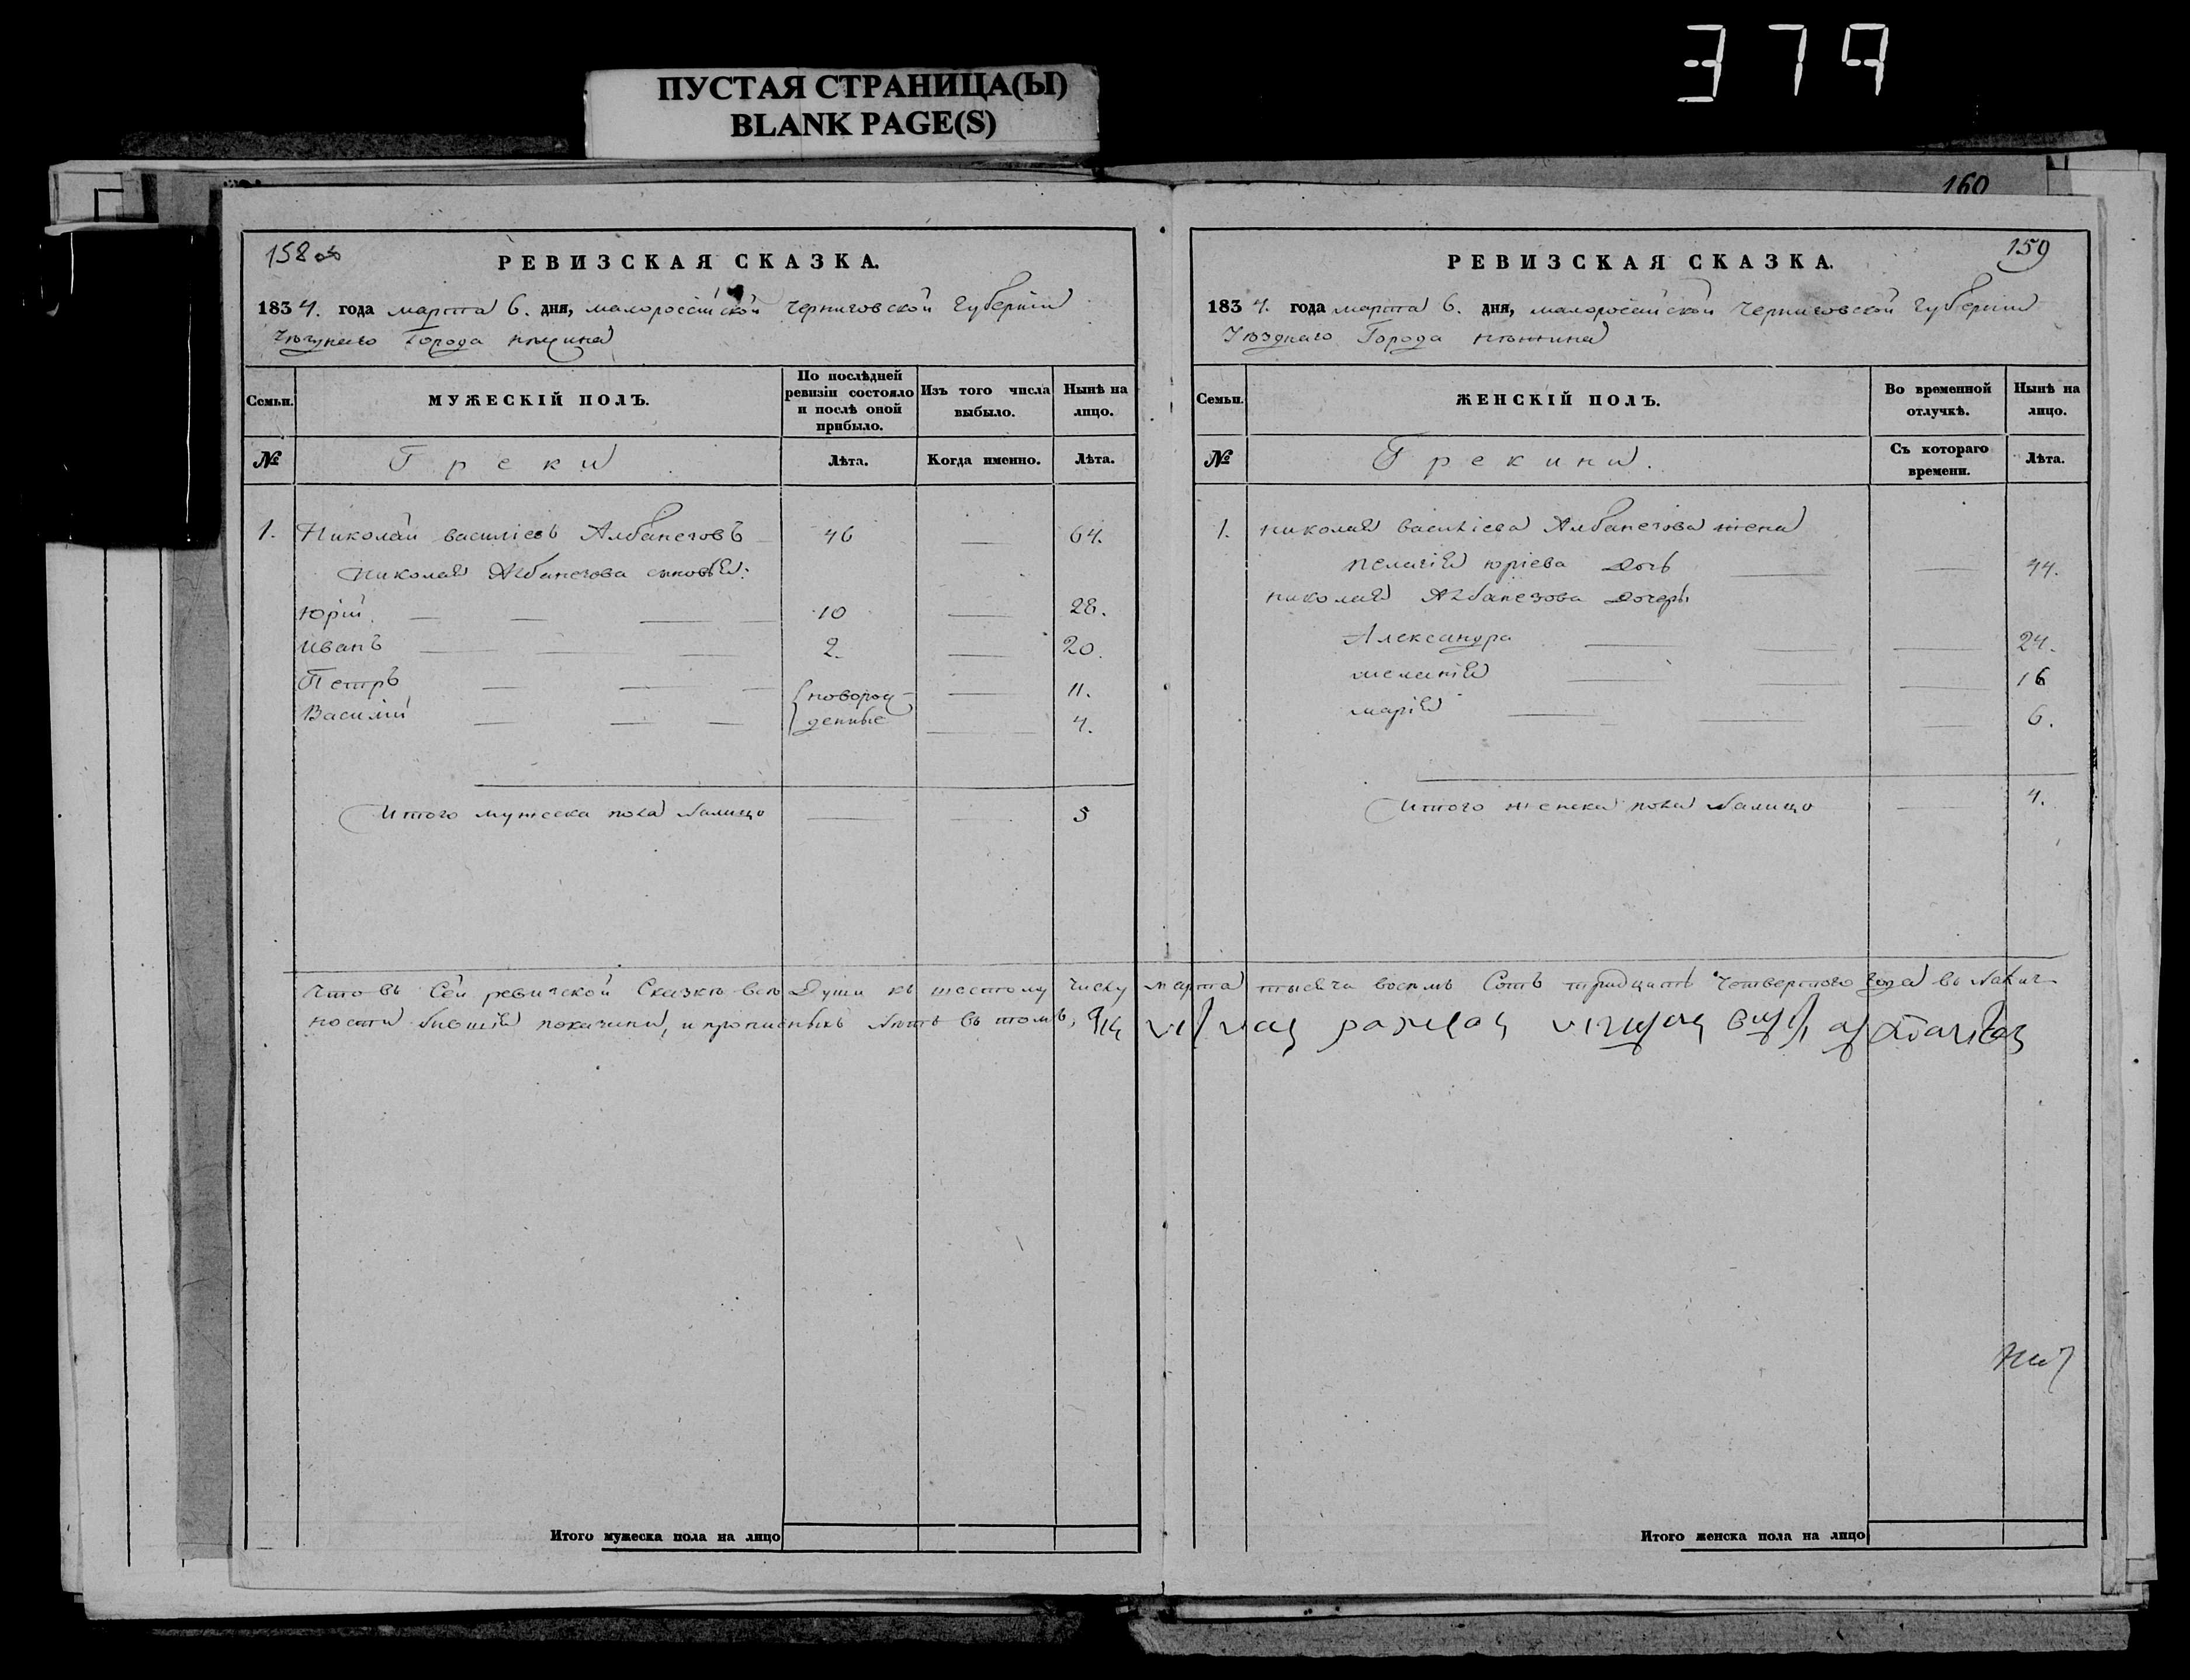 379
ПУСТАЯ СТРАНИЦА(Ы)
BLANK PAGE(S)
160
158 об
РЕВИЗСКАЯ СКАЗКА.
1834. года марта 6. дня, малоросійской Черниговской Губерніи
Города Нѣжина
Семьи.
МУЖЕСКІЙ ПОЛЪ.
По послѣдней ревизіи состояло и послѣ оной прибыло.
Изъ того числа выбыло.
Нынѣ на лицо.
№
Греки
Лѣта.
Когда именно.
Лѣта.
1. Николай василіевъ Албанезовъ 46 — 64.
Николая Албанезова сыновья:
Юрій. — — — 10 — 28.
Иванъ — — — 2. — 20.
Петръ — — — { новорож- — 11.
Василій — — — { денные — 4.
Итого мужеска пола налицо — — 5
159
РЕВИЗСКАЯ СКАЗКА.
1834. года марта 6. дня, малоросійской Черниговской Губерніи
Уѣзднаго Города Нѣжина
Семьи.
ЖЕНСКІЙ ПОЛЪ.
Во временной отлучкѣ.
Нынѣ на лицо.
№
Грекини.
Съ котораго времени.
Лѣта.
1. николая василіева Албанезова жена
Пелагія юріева дочь — — 44.
николая Албанезова дочери
Александра — — — 24.
мелания — — — 16
марія — — — 6.
Итого женска пола налицо — 4.
Что въ Сей ревизской Сказке все Души къ шестому числу марта тысяча восемь Сотъ тридцать Четвертого года въ Налич-
ности бывшія показаны, и прописныхъ нѣтъ въ томъ,
Итого мужеска пола на лицо
Итого женска пола на лицо